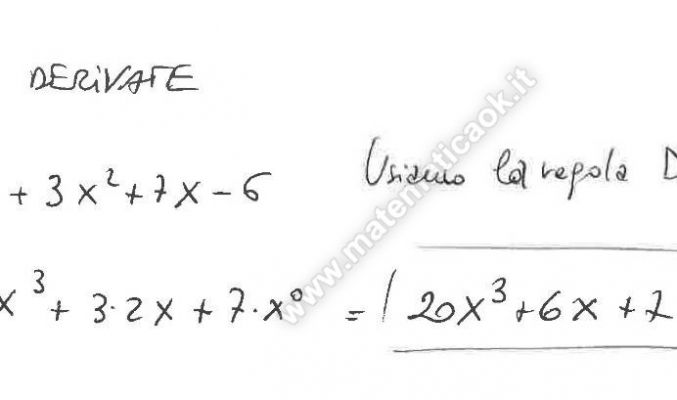 DERIVATE
+ 3x² + 7x - 6
Usiamo la regola D
x³ + 3·2x + 7·x⁰ = 20x³ + 6x + 7
www.matematicaok.it